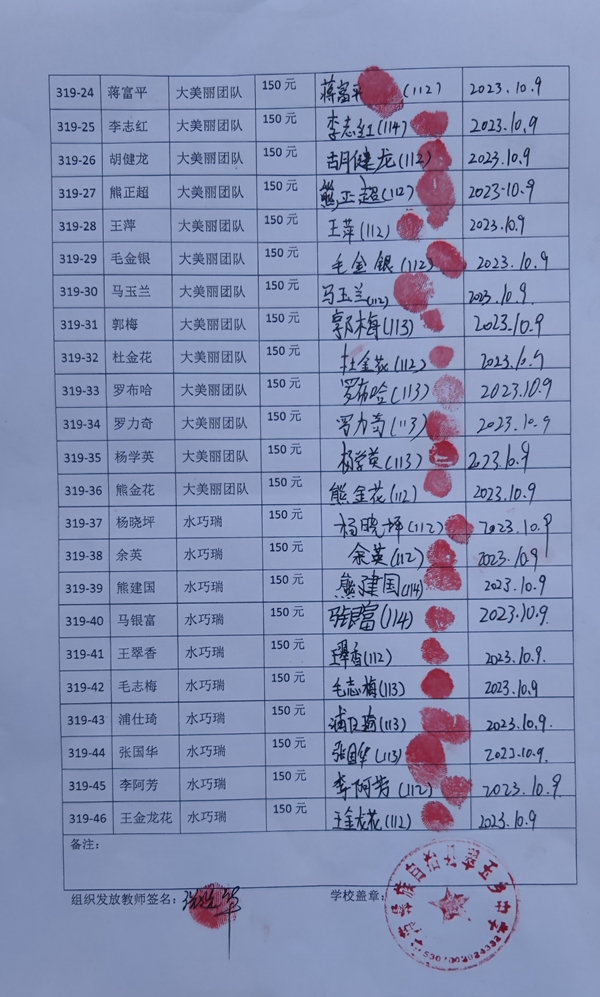 319-24 蒋富平 大美丽团队 150 元 蒋富平 (112) 2023.10.9
319-25 李志红 大美丽团队 150 元 李志红 (114) 2023.10.9
319-26 胡健龙 大美丽团队 150 元 胡健龙 (112) 2023.10.9
319-27 熊正超 大美丽团队 150 元 熊正超 (112) 2023.10.9
319-28 王萍 大美丽团队 150 元 王萍 (112) 2023.10.9
319-29 毛金银 大美丽团队 150 元 毛金银 (112) 2023.10.9
319-30 马玉兰 大美丽团队 150 元 马玉兰 (112) 2023.10.9
319-31 郭梅 大美丽团队 150 元 郭梅 (113) 2023.10.9
319-32 杜金花 大美丽团队 150 元 杜金花 (112) 2023.10.9
319-33 罗布哈 大美丽团队 150 元 罗布哈 (113) 2023.10.9
319-34 罗力奇 大美丽团队 150 元 罗力奇 (113) 2023.10.9
319-35 杨学英 大美丽团队 150 元 杨学英 (113) 2023.10.9
319-36 熊金花 大美丽团队 150 元 熊金花 (112) 2023.10.9
319-37 杨晓坪 水巧瑞 150 元 杨晓坪 (112) 2023.10.9
319-38 余英 水巧瑞 150 元 余英 (112) 2023.10.9
319-39 熊建国 水巧瑞 150 元 熊建国 (114) 2023.10.9
319-40 马银富 水巧瑞 150 元 马银富 (114) 2023.10.9
319-41 王翠香 水巧瑞 150 元 王翠香 (112) 2023.10.9.
319-42 毛志梅 水巧瑞 150 元 毛志梅 (113) 2023.10.9
319-43 浦仕琦 水巧瑞 150 元 (113) 2023.10.9.
319-44 张国华 水巧瑞 150 元 张国华 (113) 2023.10.9.
319-45 李阿芳 水巧瑞 150 元 李阿芳 (112) 2023.10.9
319-46 王金龙花 水巧瑞 150 元 王金龙花 (112) 2023.10.9
备注：
组织发放教师签名： 学校盖章：